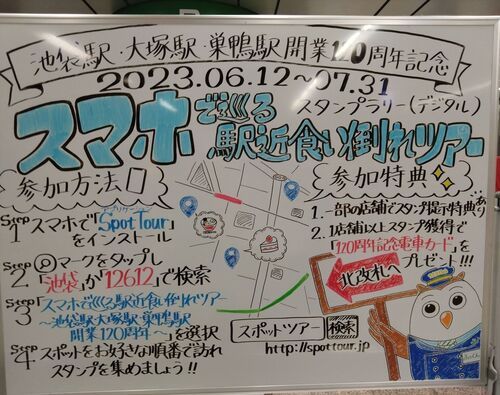 池袋駅・大塚駅・巣鴨駅開業120周年記念
2023.06.12～07.31
スタンプラリー(デジタル)
スマホで巡る駅近食い倒れツアー
参加方法
Step1 スマホで「SpotTour」
アプリケーション
をインストール
Step2 マークをタップし
「池袋」か「12612」で検索
Step3 「スマホで巡る駅近食い倒れツアー
～池袋駅・大塚駅・巣鴨駅
開業120周年～」を選択
Step4 スポットをお好きな順番で訪れ
スタンプを集めましょう!!
参加特典
1. 一部の店舗でスタンプ提示特典あり
2. 1店舗以上スタンプ獲得で
「120周年記念電車カード」を
プレゼント!!!
北改札へ
スポットツアー 検索
http://spottour.jp